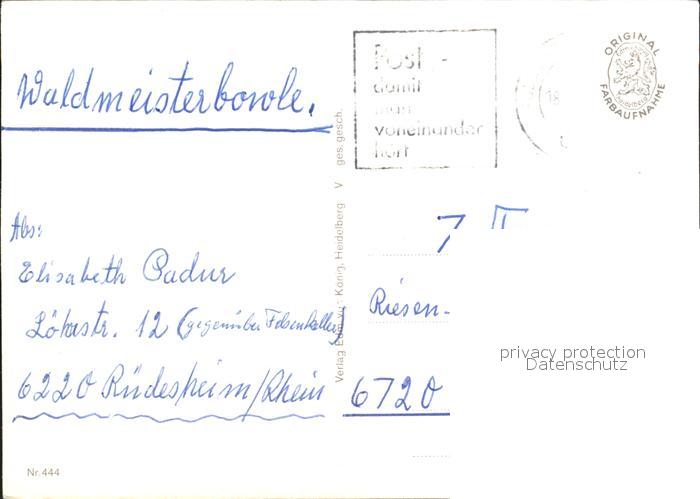 Waldmeisterbowle.
Post -
damit
man
voneinander
hört
18
ORIGINAL
FARBAUFNAHME
Heidelberg
Abs:
Elisabeth
Löhrstr. 12 (gegenüber Felsenkeller)
6220 Rüdesheim/Rhein
Verlag Edm. von König, Heidelberg V ges. gesch.
Riesen-
6720
privacy protection
Datenschutz
Nr. 444